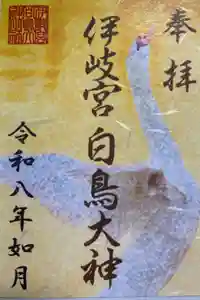 奉拝
伊岐宮 白鳥大神
令和八年如月